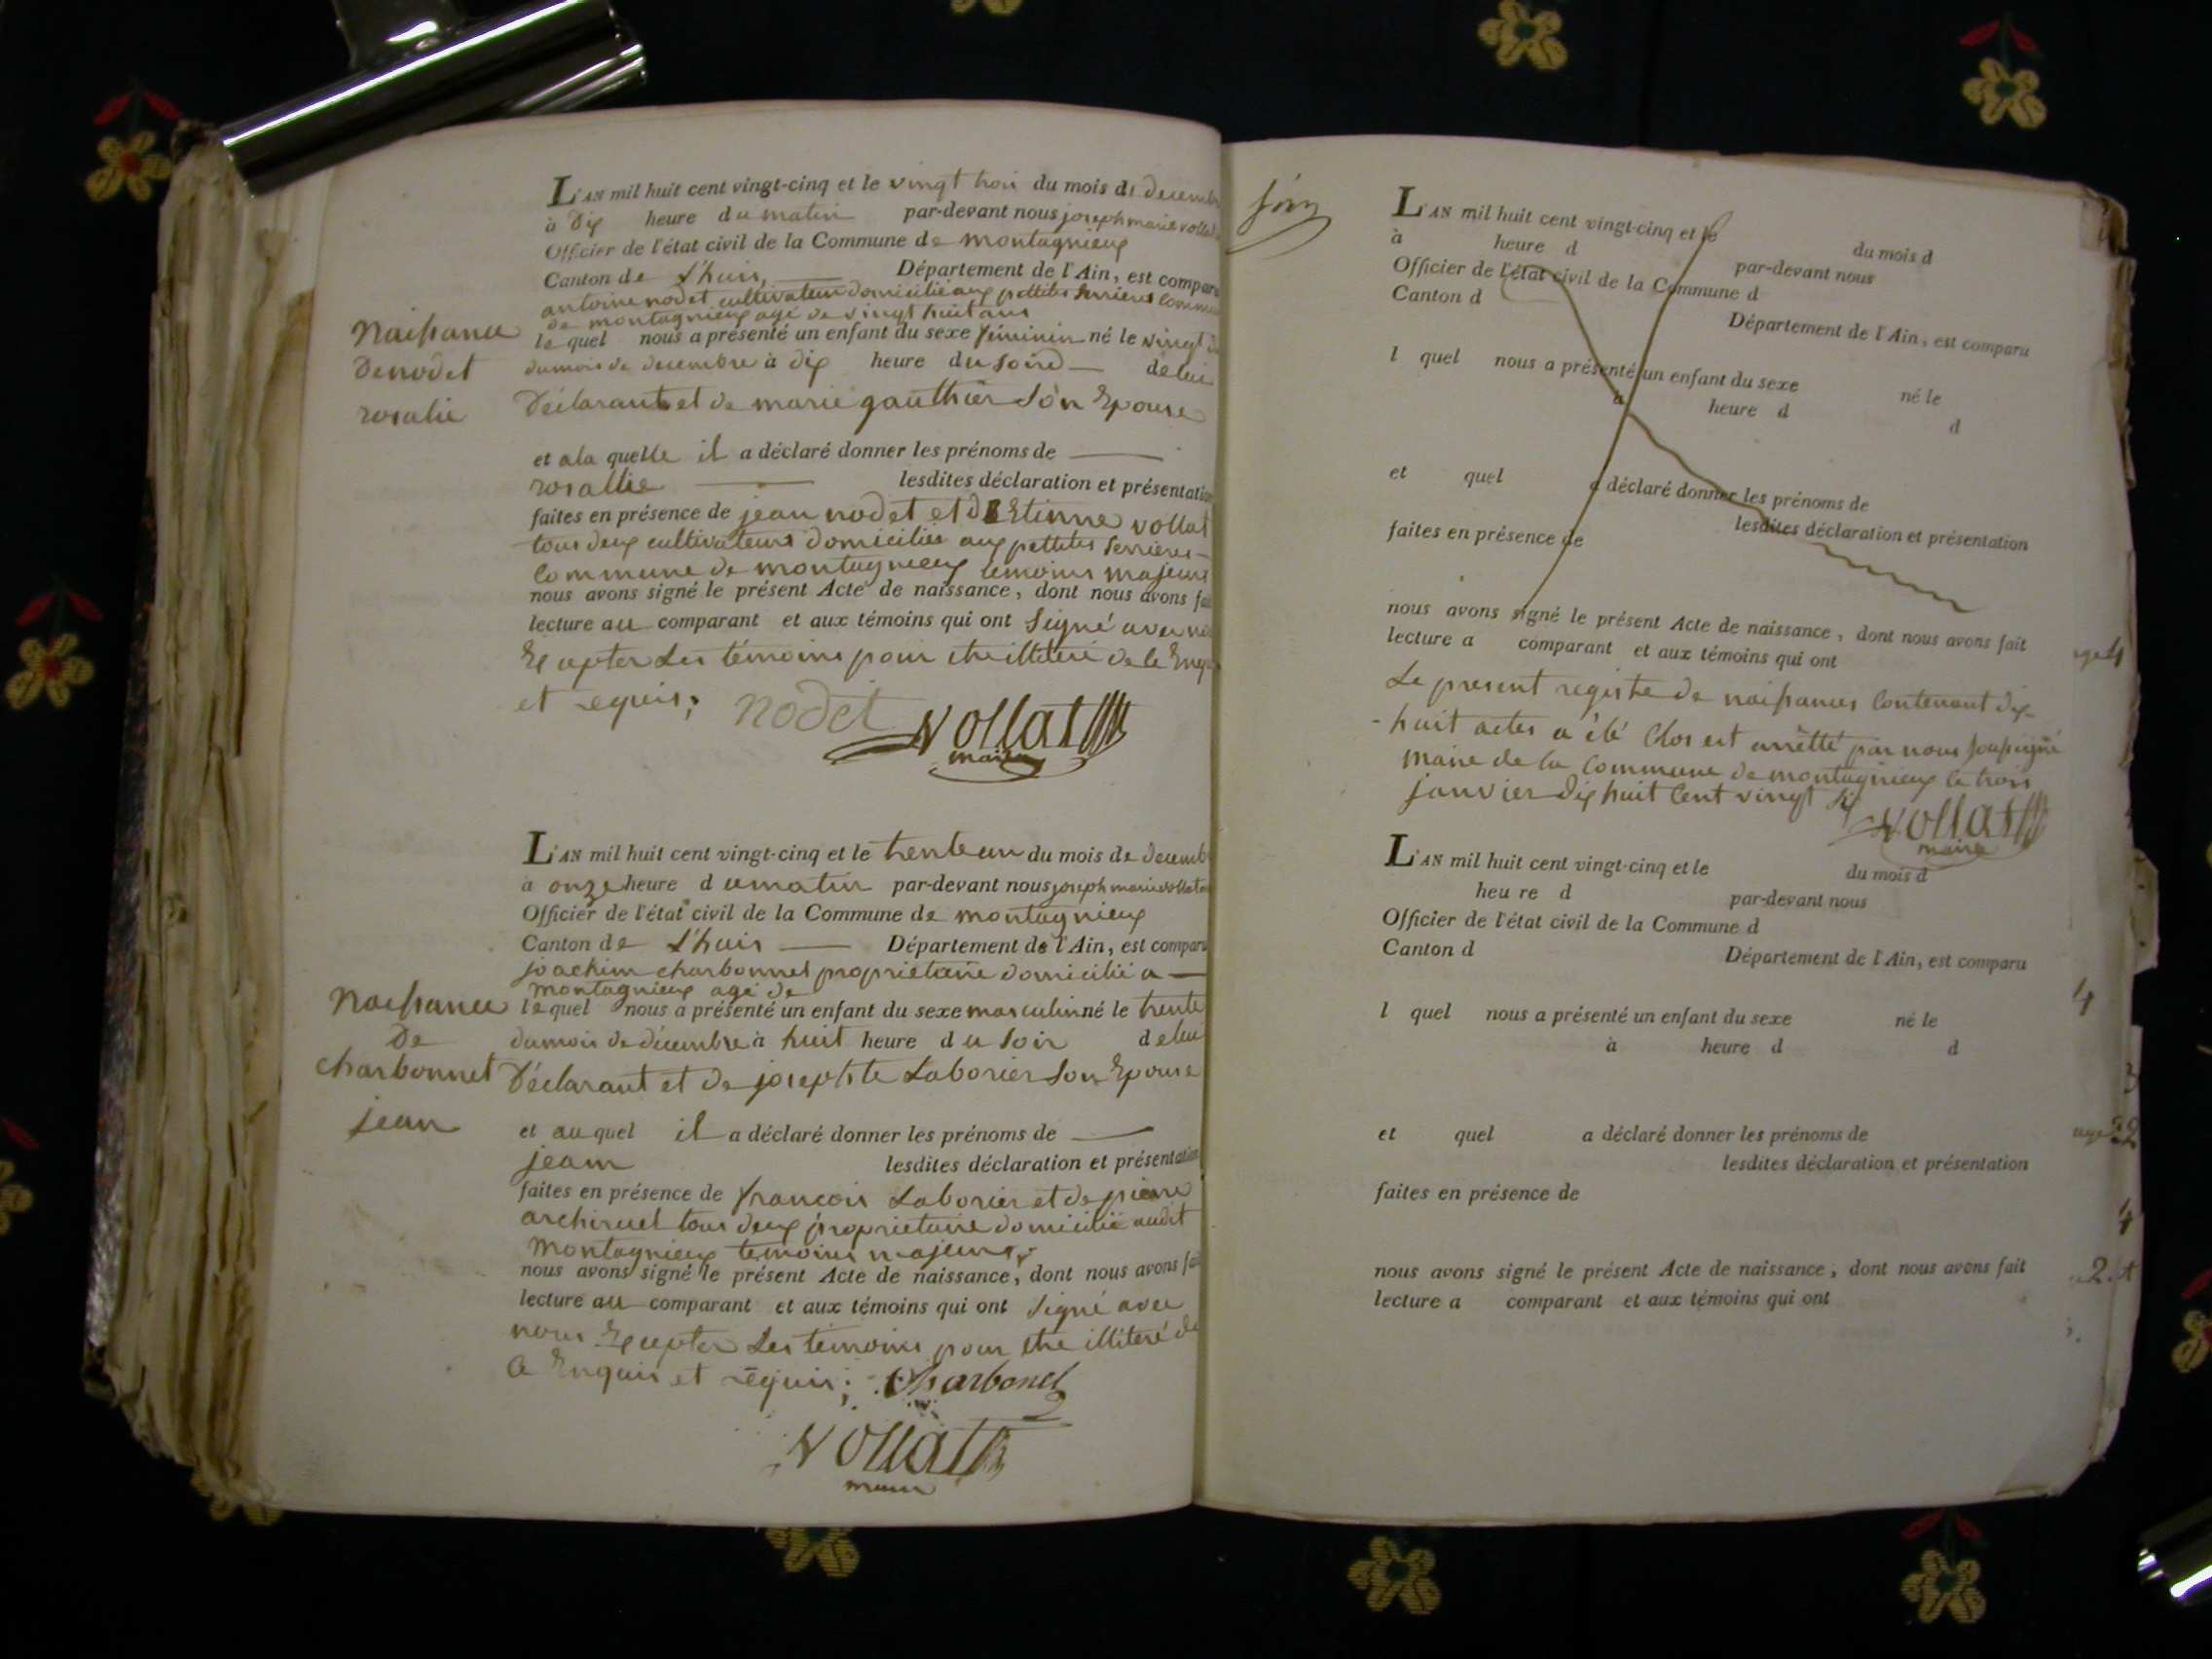 L'AN mil huit cent vingt-cinq et le vingt trois du mois de decembre
à dix heure du matin par-devant nous joseph marie vollat
Officier de l'état civil de la Commune de montagnieux
Canton de L'huis, Département de l'Ain, est comparu
antoine nodet cultivateur domicilié aux pettites Serrieres Commune
de montagnieux agé de vingt huit ans
Naissance
de nodet
rosalie
lequel nous a présenté un enfant du sexe féminin né le vingt
du mois de decembre à dix heure du soire de lui
Déclarant et de marie gauthier Son Epouse
et ala quelle il a déclaré donner les prénoms de
rosallie lesdites déclaration et présentation
faites en présence de jean nodet et d Etienne vollat
tous deux cultivateurs domiciliés aux pettites Serrieres
Commune de montagnieux temoins majeurs
nous avons signé le présent Acte de naissance, dont nous avons fait
lecture au comparant et aux témoins qui ont Signé avec nous
Excepter Les témoins pour etre illiteré de le Enquis
et requis; nodet vollat
maire
L'AN mil huit cent vingt-cinq et le trente un du mois de decembre
à onze heure du matin par-devant nous joseph marie vollat
Officier de l'état civil de la Commune de montagnieux
Canton de L'huis Département de l'Ain, est comparu
joachim charbonnet proprietaire domicilié a
montagnieux agé de
Naissance
De
charbonnet
jean
lequel nous a présenté un enfant du sexe masculin né le trente
du mois de décembre à huit heure du Soir de lui
Déclarant et de josephte Laborier Son Epouse
et au quel il a déclaré donner les prénoms de
jean lesdites déclaration et présentation
faites en présence de francois Laborier et de pierre
tous deux proprietaire domicilié audit
montagnieux temoins majeurs
nous avons signé le présent Acte de naissance, dont nous avons fait
lecture au comparant et aux témoins qui ont Signé avec
nous Excepter Les témoins pour etre illiteré de
Enquis et requis; Charbonet
vollat
maire
fin
L'AN mil huit cent vingt-cinq et le du mois d
à heure d par-devant nous
Officier de l'état civil de la Commune d
Canton d Département de l'Ain, est comparu
l quel nous a présenté un enfant du sexe né le
à heure d d
et quel a déclaré donner les prénoms de
lesdites déclaration et présentation
faites en présence de
nous avons signé le présent Acte de naissance, dont nous avons fait
lecture a comparant et aux témoins qui ont
Le present registre de naissances Contenant dix-
-huit actes a été Clos est arrêtté par nous Soussigné
maire de la Commune de montagnieux le trois
janvier dix huit Cent vingt Six
vollat
maire
L'AN mil huit cent vingt-cinq et le du mois d
heu re d par-devant nous
Officier de l'état civil de la Commune d
Canton d Département de l'Ain, est comparu
l quel nous a présenté un enfant du sexe né le
à heure d d
et quel a déclaré donner les prénoms de
lesdites déclaration et présentation
faites en présence de
nous avons signé le présent Acte de naissance, dont nous avons fait
lecture a comparant et aux témoins qui ont